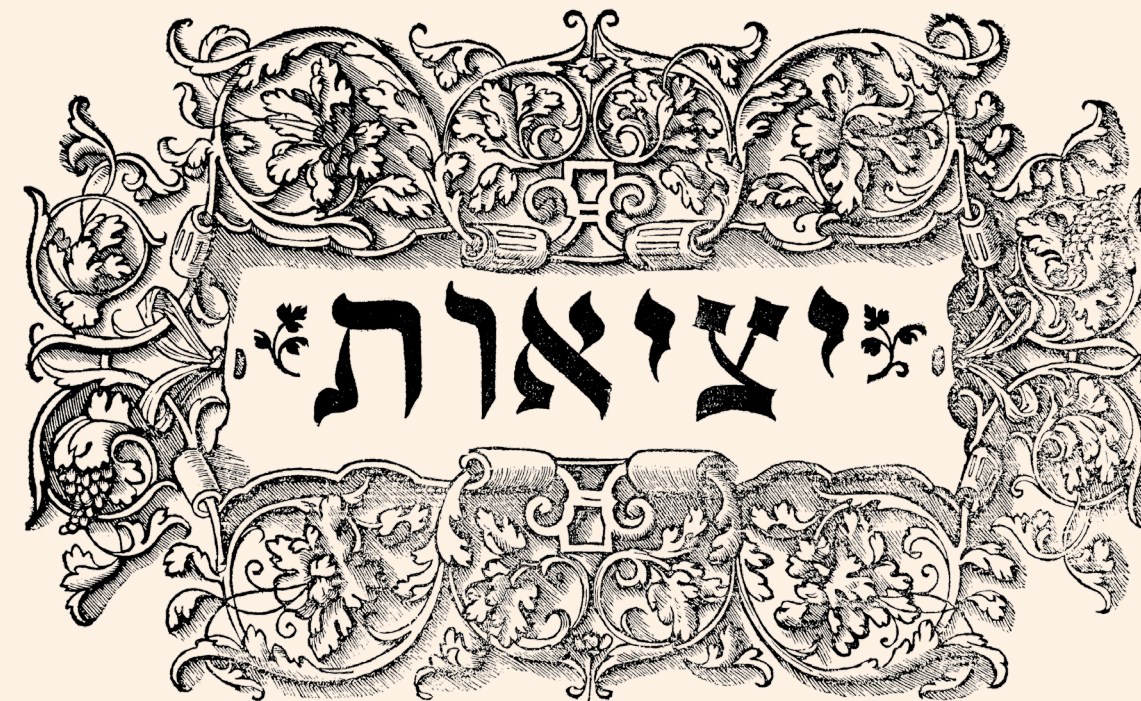 יציאות